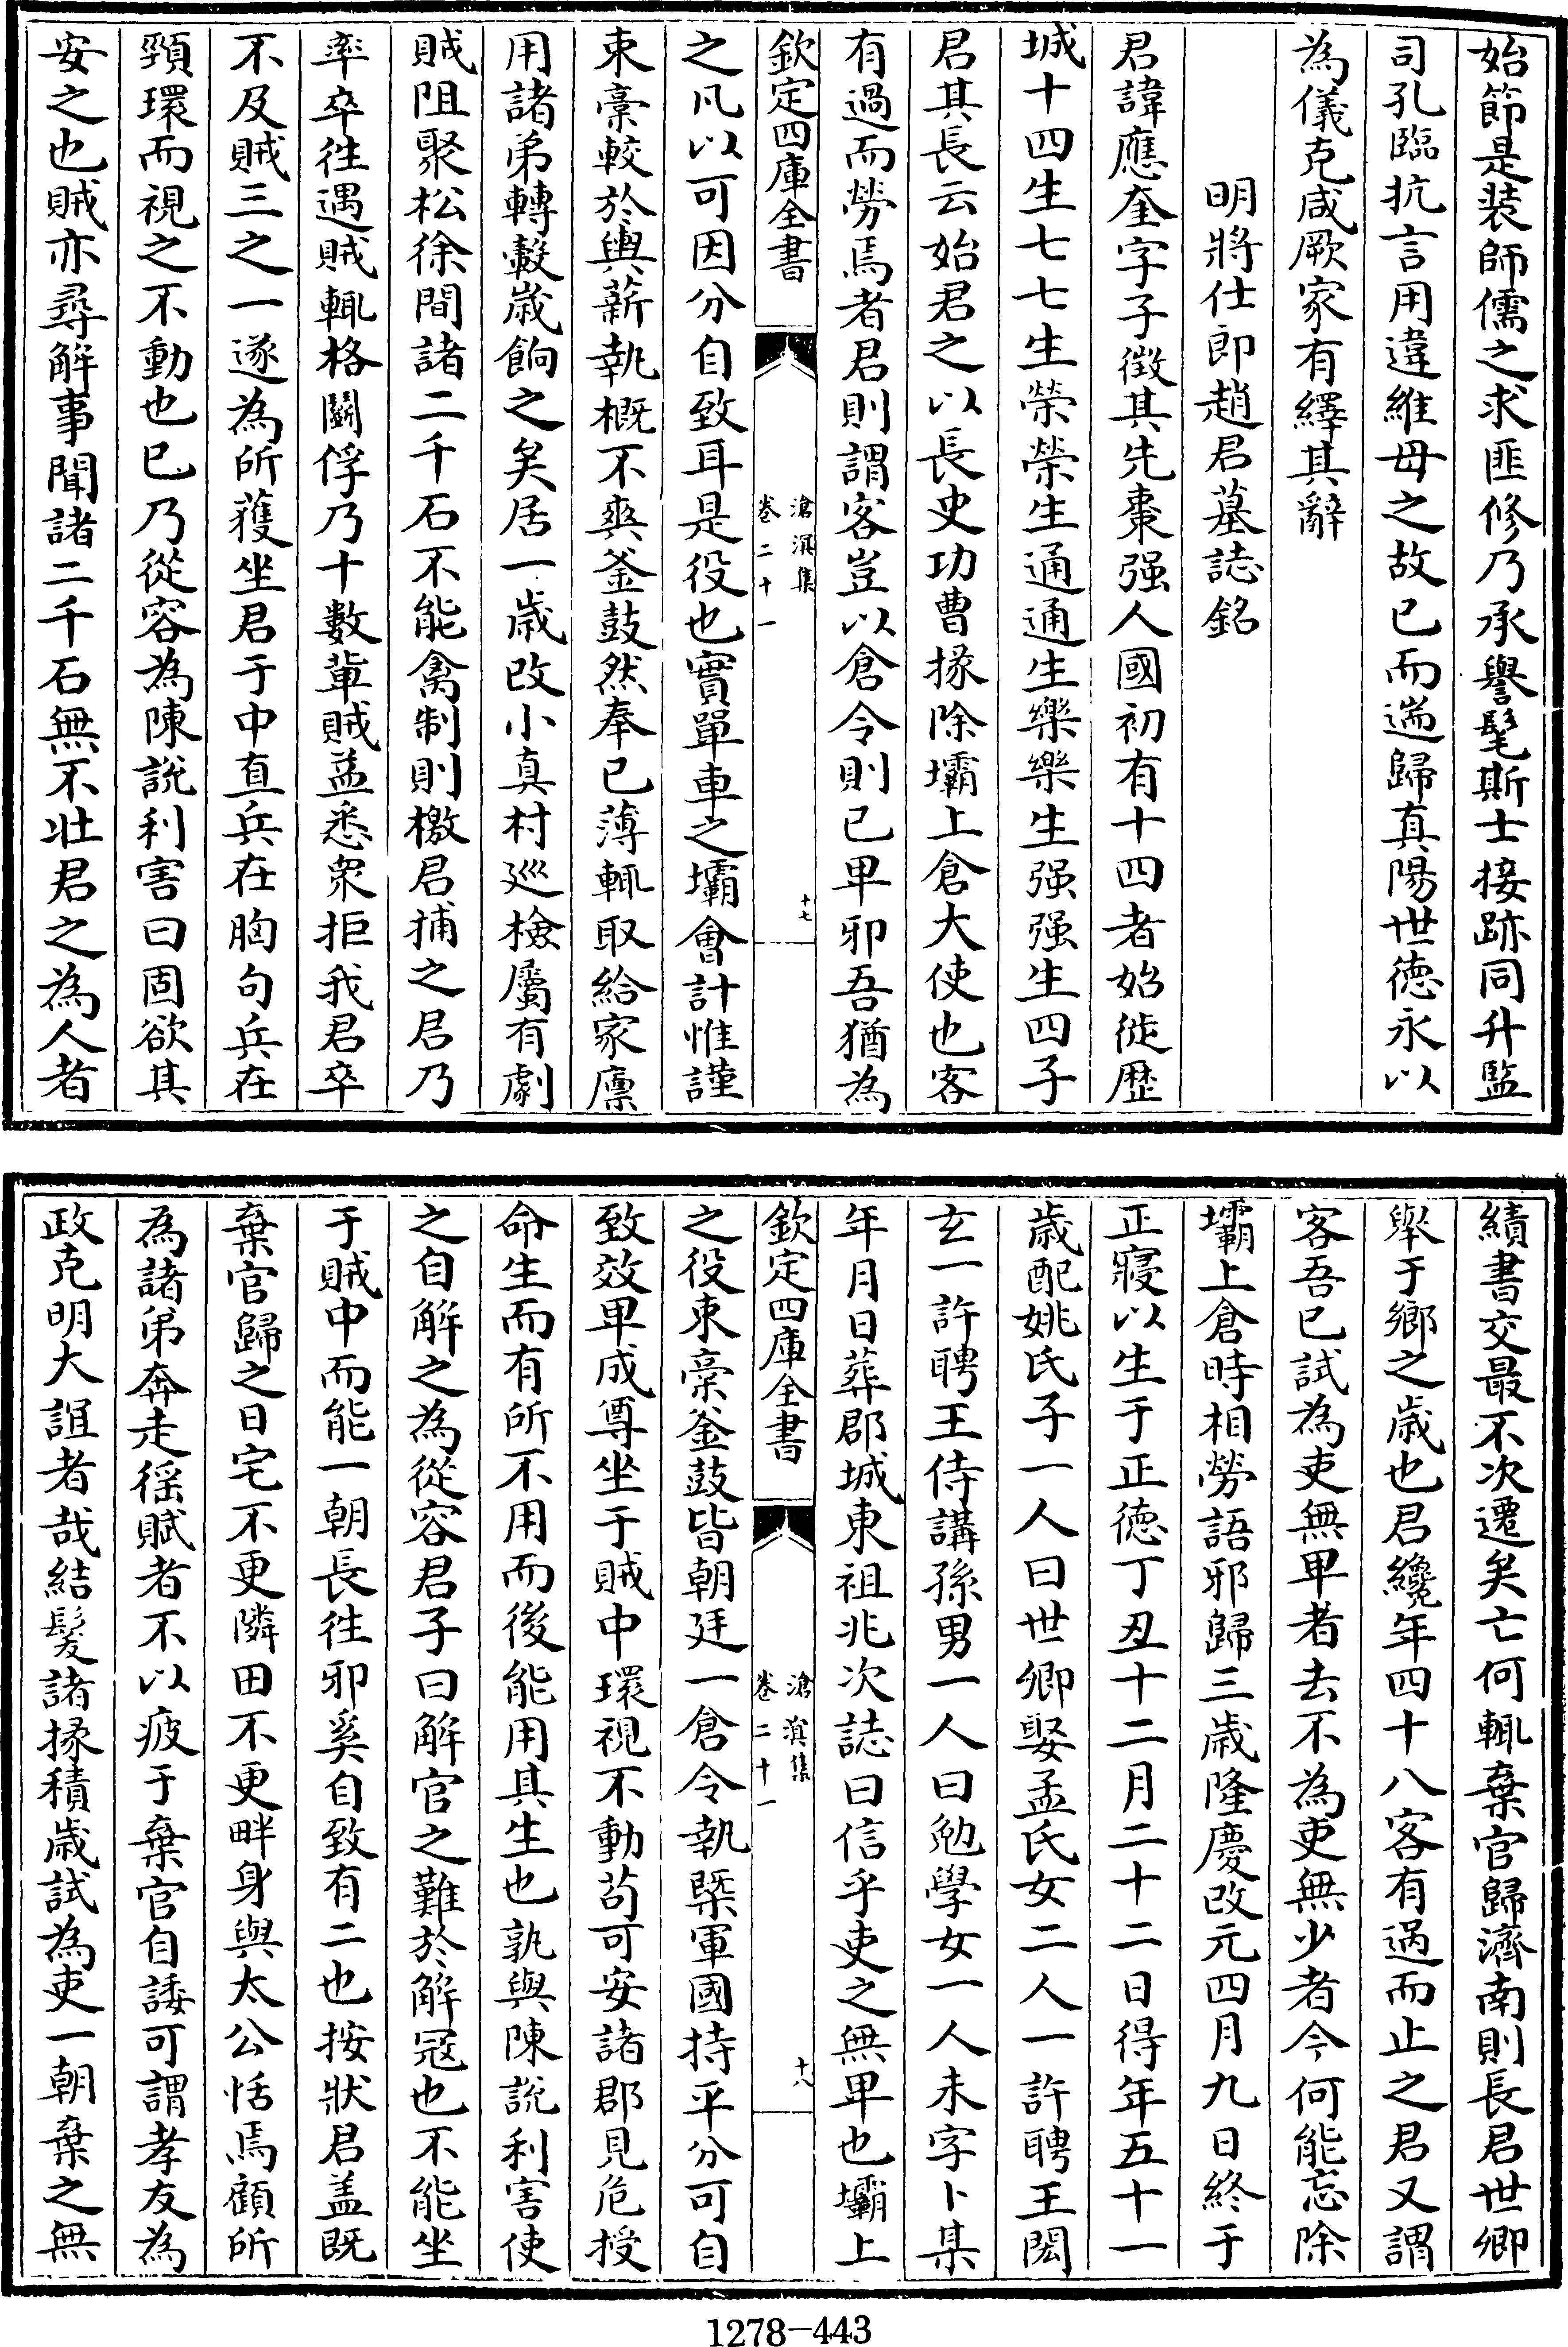 始節是裝師儒之求匪修乃承譽髦斯士接跡同升監
司孔臨抗言用違維母之故已而遄歸真陽世德永以
為儀克咸厥家有繹其辭
明將仕郎趙君墓誌銘
君諱應奎字子徵其先棗强人國初有十四者始徙歷
城十四生七七生榮榮生通通生樂樂生强强生四子
君其長云始君之以長史功曹掾除壩上倉大使也客
有過而勞焉者君則謂客豈以倉令則已卑邪吾猶為
欽定四庫全書
滄溟集
卷二十一
十七
之凡以可因分自致耳是役也實單車之壩會計惟謹
束藁較於輿薪執概不爽釜鼓然奉已薄輒取給家廪
用諸弟轉轂歲餉之矣居一歲改小真村廵檢屬有劇
賊阻聚松徐間諸二千石不能禽制則檄君捕之君乃
率卒徃遇賊輒格鬭俘乃十數軰賊益悉衆拒我君卒
不及賊三之一遂為所獲坐君于中直兵在胸句兵在
頸環而視之不動也已乃從容為陳說利害曰固欲其
安之也賊亦尋解事聞諸二千石無不壯君之為人者
績書交最不次遷矣亡何輒棄官歸濟南則長君世卿
舉于鄉之歲也君纔年四十八客有過而止之君又謂
客吾已試為吏無卑者去不為吏無少者今何能忘除
壩上倉時相勞語邪歸三歲隆慶改元四月九日終于
正寢以生于正德丁丑十二月二十二日得年五十一
歲配姚氏子一人曰世卿娶孟氏女二人一許聘王閎
玄一許聘王侍講孫男一人曰勉學女一人未字卜某
年月日葬郡城東祖兆次誌曰信乎吏之無卑也壩上
欽定四庫全書
滄溟集
卷二十一
十八
之役束藁釜鼓皆朝廷一倉令執槩軍國持平分可自
致效卑成尊坐于賊中環視不動苟可安諸郡見危授
命生而有所不用而後能用其生也孰與陳說利害使
之自解之為從容君子曰解官之難於解冦也不能坐
于賊中而能一朝長徃邪奚自致有二也按狀君盖既
棄官歸之日宅不更隣田不更畔身與太公恬焉顧所
為諸弟奔走徭賦者不以疲于棄官自諉可謂孝友為
政克明大誼者哉結髮諸掾積歲試為吏一朝棄之無
1278-443